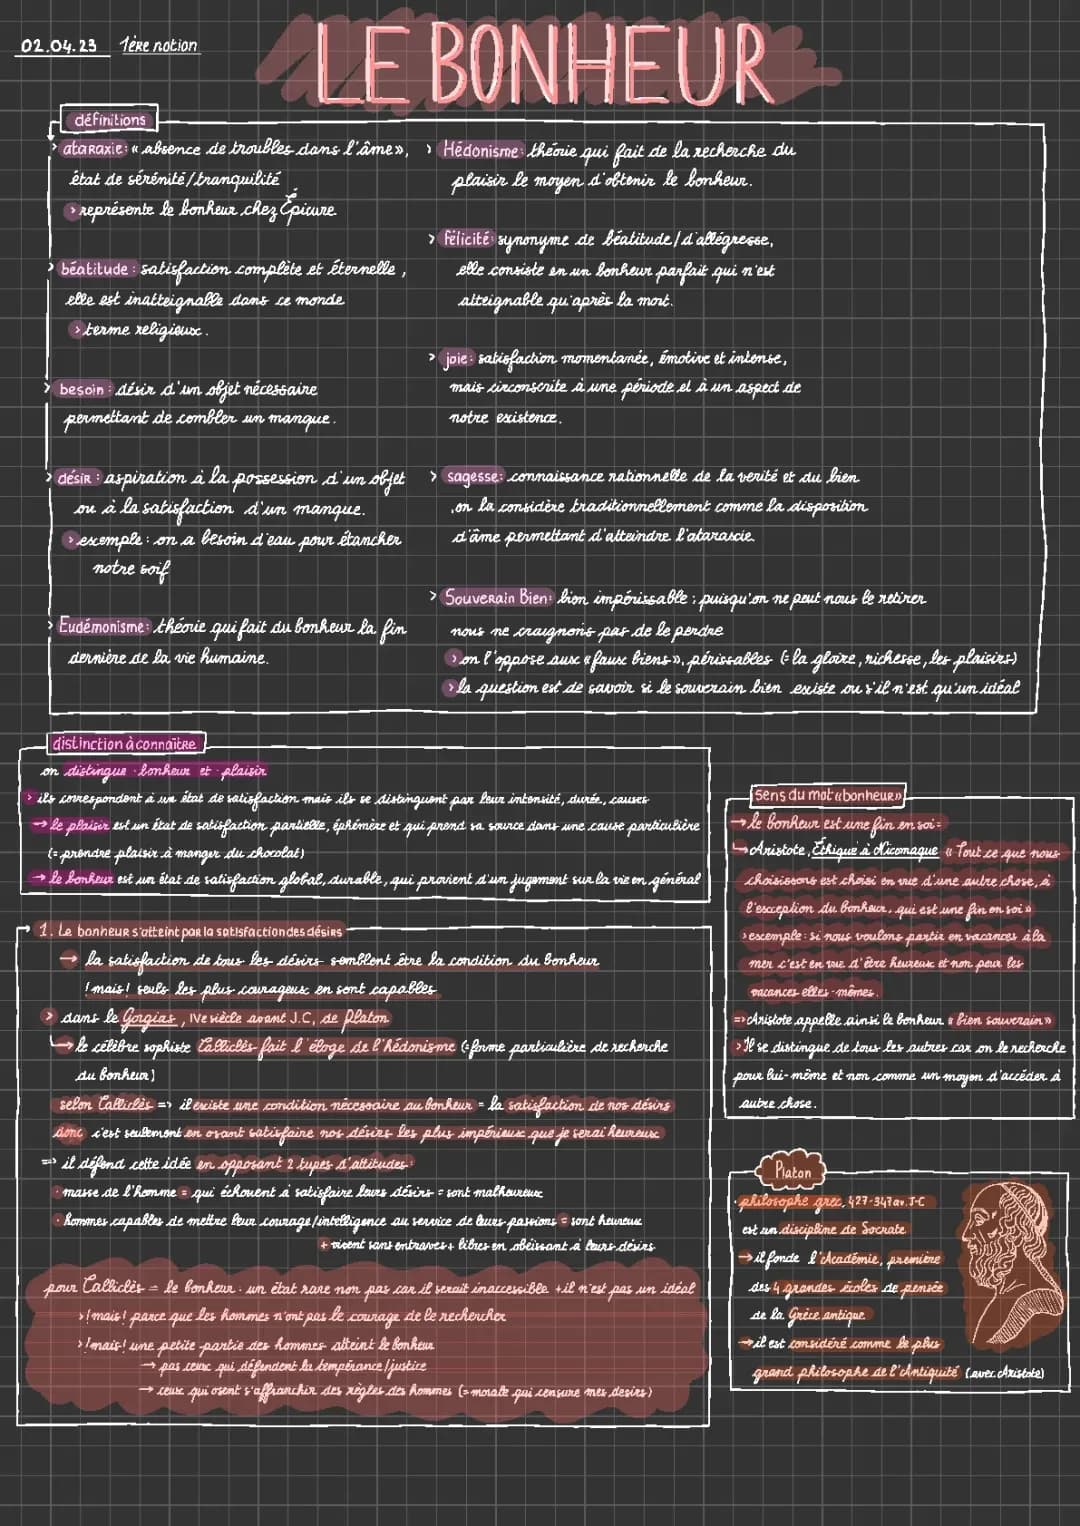 02.04.23 1ère notion
LE BONHEUR
définitions
> ataraxie: « absence de troubles dans l'âme»,
état de sérénité/tranquilité
> représente le bonheur chez Épicure
> béatitude : satisfaction complète et éternelle,
elle est inatteignable dans ce monde
> terme religieux.
> besoin : désir d'un objet nécessaire
permettant de combler un manque.
> désir : aspiration à la possession d'un objet
ou à la satisfaction d'un manque.
> exemple : on a besoin d'eau pour étancher
notre soif
> Eudémonisme: théorie qui fait du bonheur la fin
dernière de la vie humaine.
> Hédonisme: théorie qui fait de la recherche du
plaisir le moyen d'obtenir le bonheur.
> félicité: synonyme de béatitude/d'allégresse,
elle consiste en un bonheur parfait qui n'est
atteignable qu'après la mort.
> joie: satisfaction momentanée, émotive et intense,
mais circonscrite à une période et à un aspect de
notre existence.
> sagesse: connaissance rationnelle de la verité et du bien
,on la considère traditionnellement comme la disposition
d'âme permettant d'atteindre l'ataraxie.
> Souverain Bien: bien impérissable ; puisqu'on ne peut nous le retirer
nous ne craignons pas de le perdre
> on l'oppose aux «faux biens», périssables (=la gloire, richesse, les plaisirs)
> la question est de savoir si le souverain bien existe ou s'il n'est qu'un idéal
distinction à connaître
on distingue bonheur et plaisir
> ils correspondent à un état de satisfaction mais ils se distinguent par leur intensité, durée, causes
→ le plaisir est un état de satisfaction partielle, éphémère et qui prend sa source dans une cause particulière
(= prendre plaisir à manger du chocolat)
→ le bonheur est un état de satisfaction global, durable, qui provient d'un jugement sur la vie en général
sens du mot «bonheur»
→ le bonheur est une fin en soi:
↳ Aristote, Éthique à Nicomaque « Tout ce que nous
choisissons est choisi en vue d'une autre chose, à
l'exception du bonheur, qui est une fin en soi »
> exemple : si nous voulons partir en vacances à la
mer c'est en vue d'être heureux et non pour les
vacances elles-mêmes.
=> Aristote appelle ainsi le bonheur « bien souverain »
> Il se distingue de tous les autres car on le recherche
pour lui-même et non comme un moyen d'accéder à
autre chose.
1. Le bonheur s'atteint par la satisfaction des désirs
→ la satisfaction de tous les désirs semblent être la condition du bonheur
!mais! seuls les plus courageux en sont capables
> dans le Gorgias, IVe siècle avant J.C, de Platon
↳ le célèbre sophiste Calliclès fait l'éloge de l'hédonisme (=forme particulière de recherche
du bonheur)
selon Calliclès => il existe une condition nécessaire au bonheur = la satisfaction de nos désirs
donc c'est seulement en osant satisfaire nos désirs les plus impérieux que je serai heureux
=> il défend cette idée en opposant 2 types d'attitudes:
· masse de l'homme = qui échouent à satisfaire leurs désirs = sont malheureux
· hommes capables de mettre leur courage/intelligence au service de leurs passions = sont heureux
+ vivent sans entraves + libres en obéissant à leurs désirs
pour Calliclès = le bonheur : un état rare non pas car il serait inaccessible + il n'est pas un idéal
>!mais! parce que les hommes n'ont pas le courage de le rechercher
>!mais! une petite partie des hommes atteint le bonheur
→ pas ceux qui défendent la tempérance/justice
→ ceux qui osent s'affranchir des règles des hommes (=morale qui censure mes desirs)
Platon
· philosophe grec, 427-347 av. J-C
est un discipline de Socrate
→ il fonde l'Académie, première
des 4 grandes écoles de pensée
de la Grèce antique
→ il est considéré comme le plus
grand philosophe de l'Antiquité (avec Aristote)